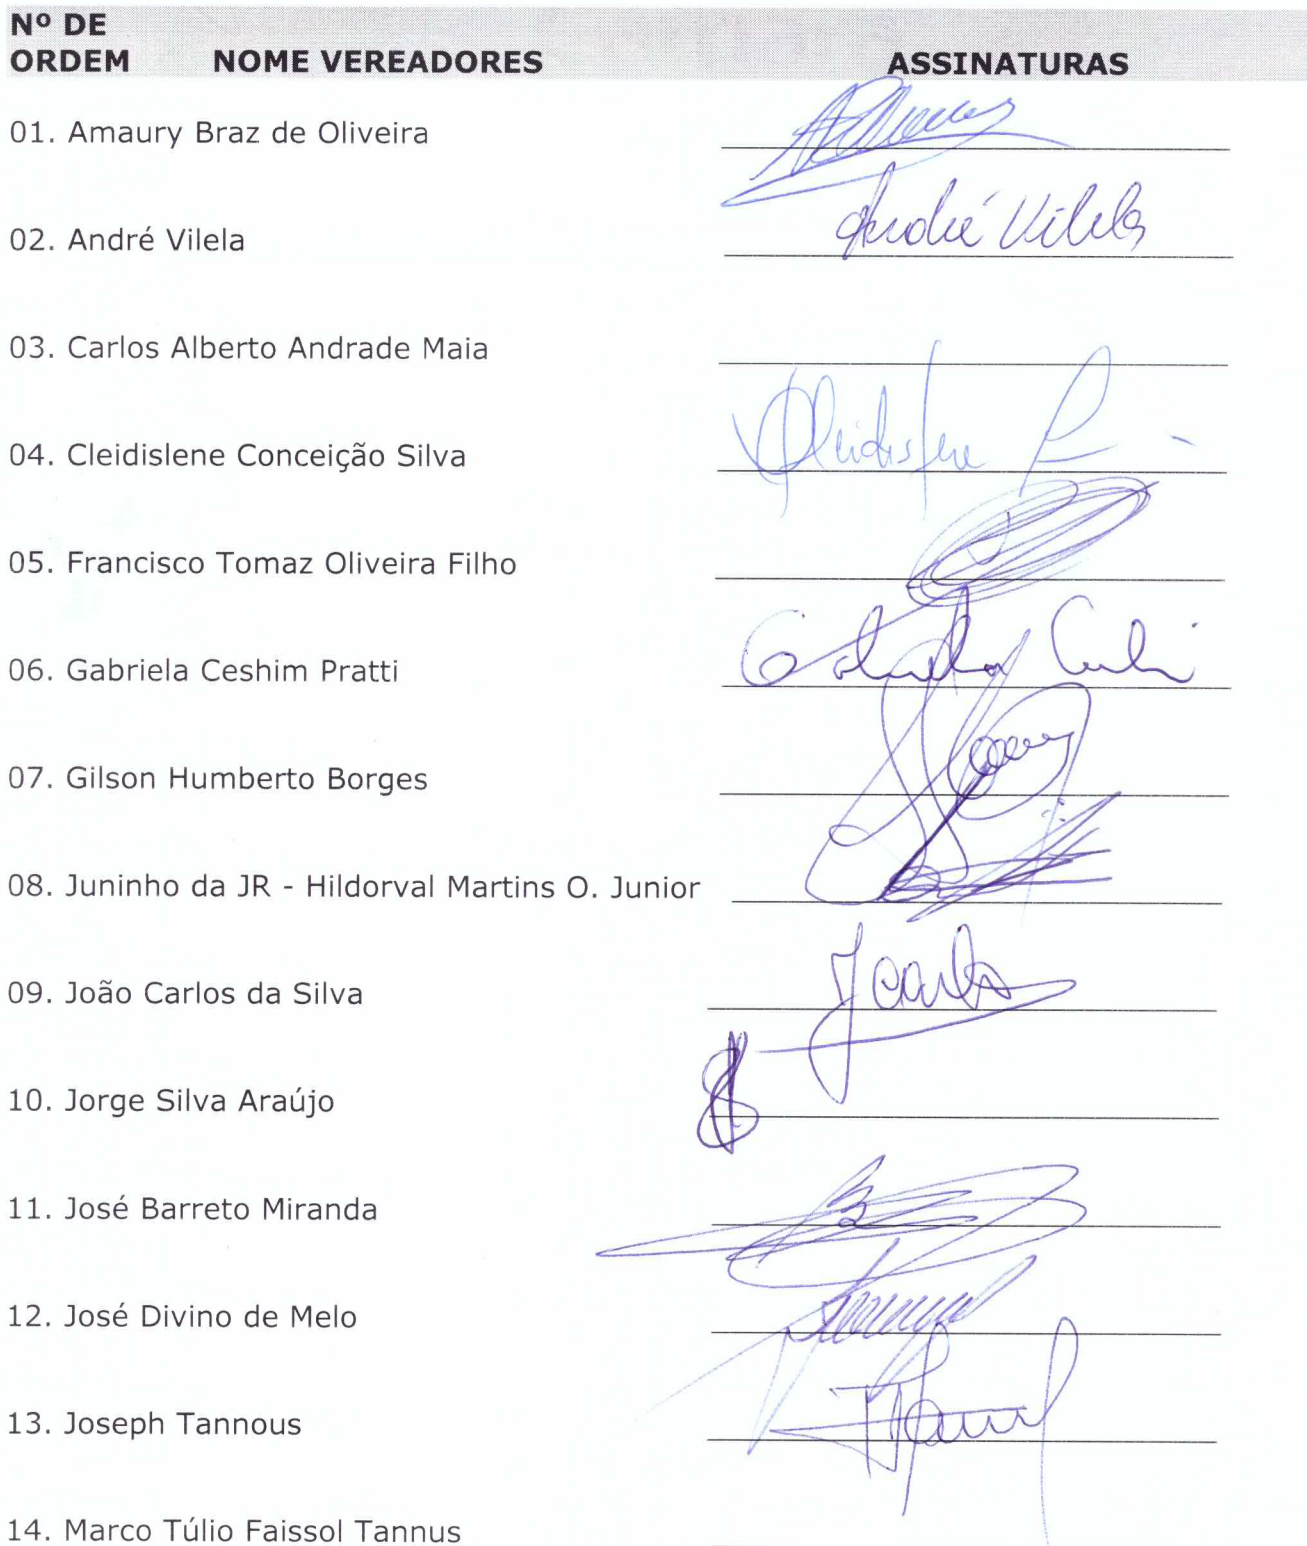 Nº DE
ORDEM NOME VEREADORES ASSINATURAS
01. Amaury Braz de Oliveira
02. André Vilela André Vilela
03. Carlos Alberto Andrade Maia
04. Cleidislene Conceição Silva
05. Francisco Tomaz Oliveira Filho
06. Gabriela Ceshim Pratti
07. Gilson Humberto Borges
08. Juninho da JR - Hildorval Martins O. Junior
09. João Carlos da Silva JCarlos
10. Jorge Silva Araújo
11. José Barreto Miranda
12. José Divino de Melo
13. Joseph Tannous
14. Marco Túlio Faissol Tannus